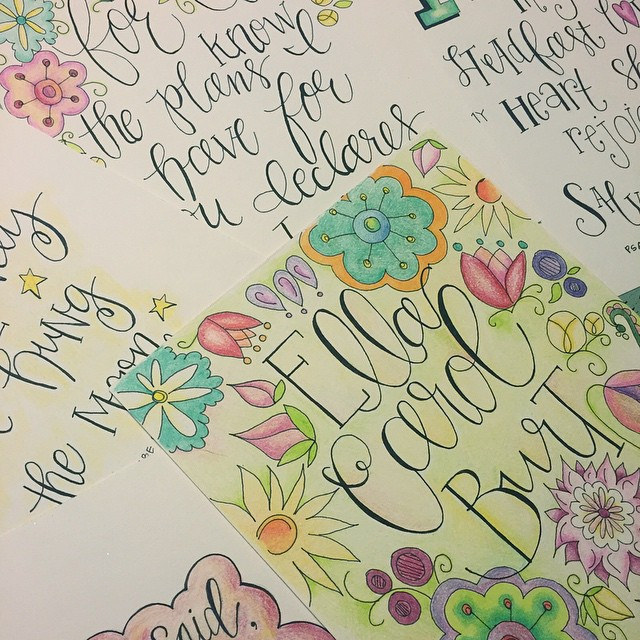 for
know
the plans I
have for
u declares
Steadfast
my Heart sh
rejoic
Salv
hung
the Moon
Ella
Carol
Burt
Said,